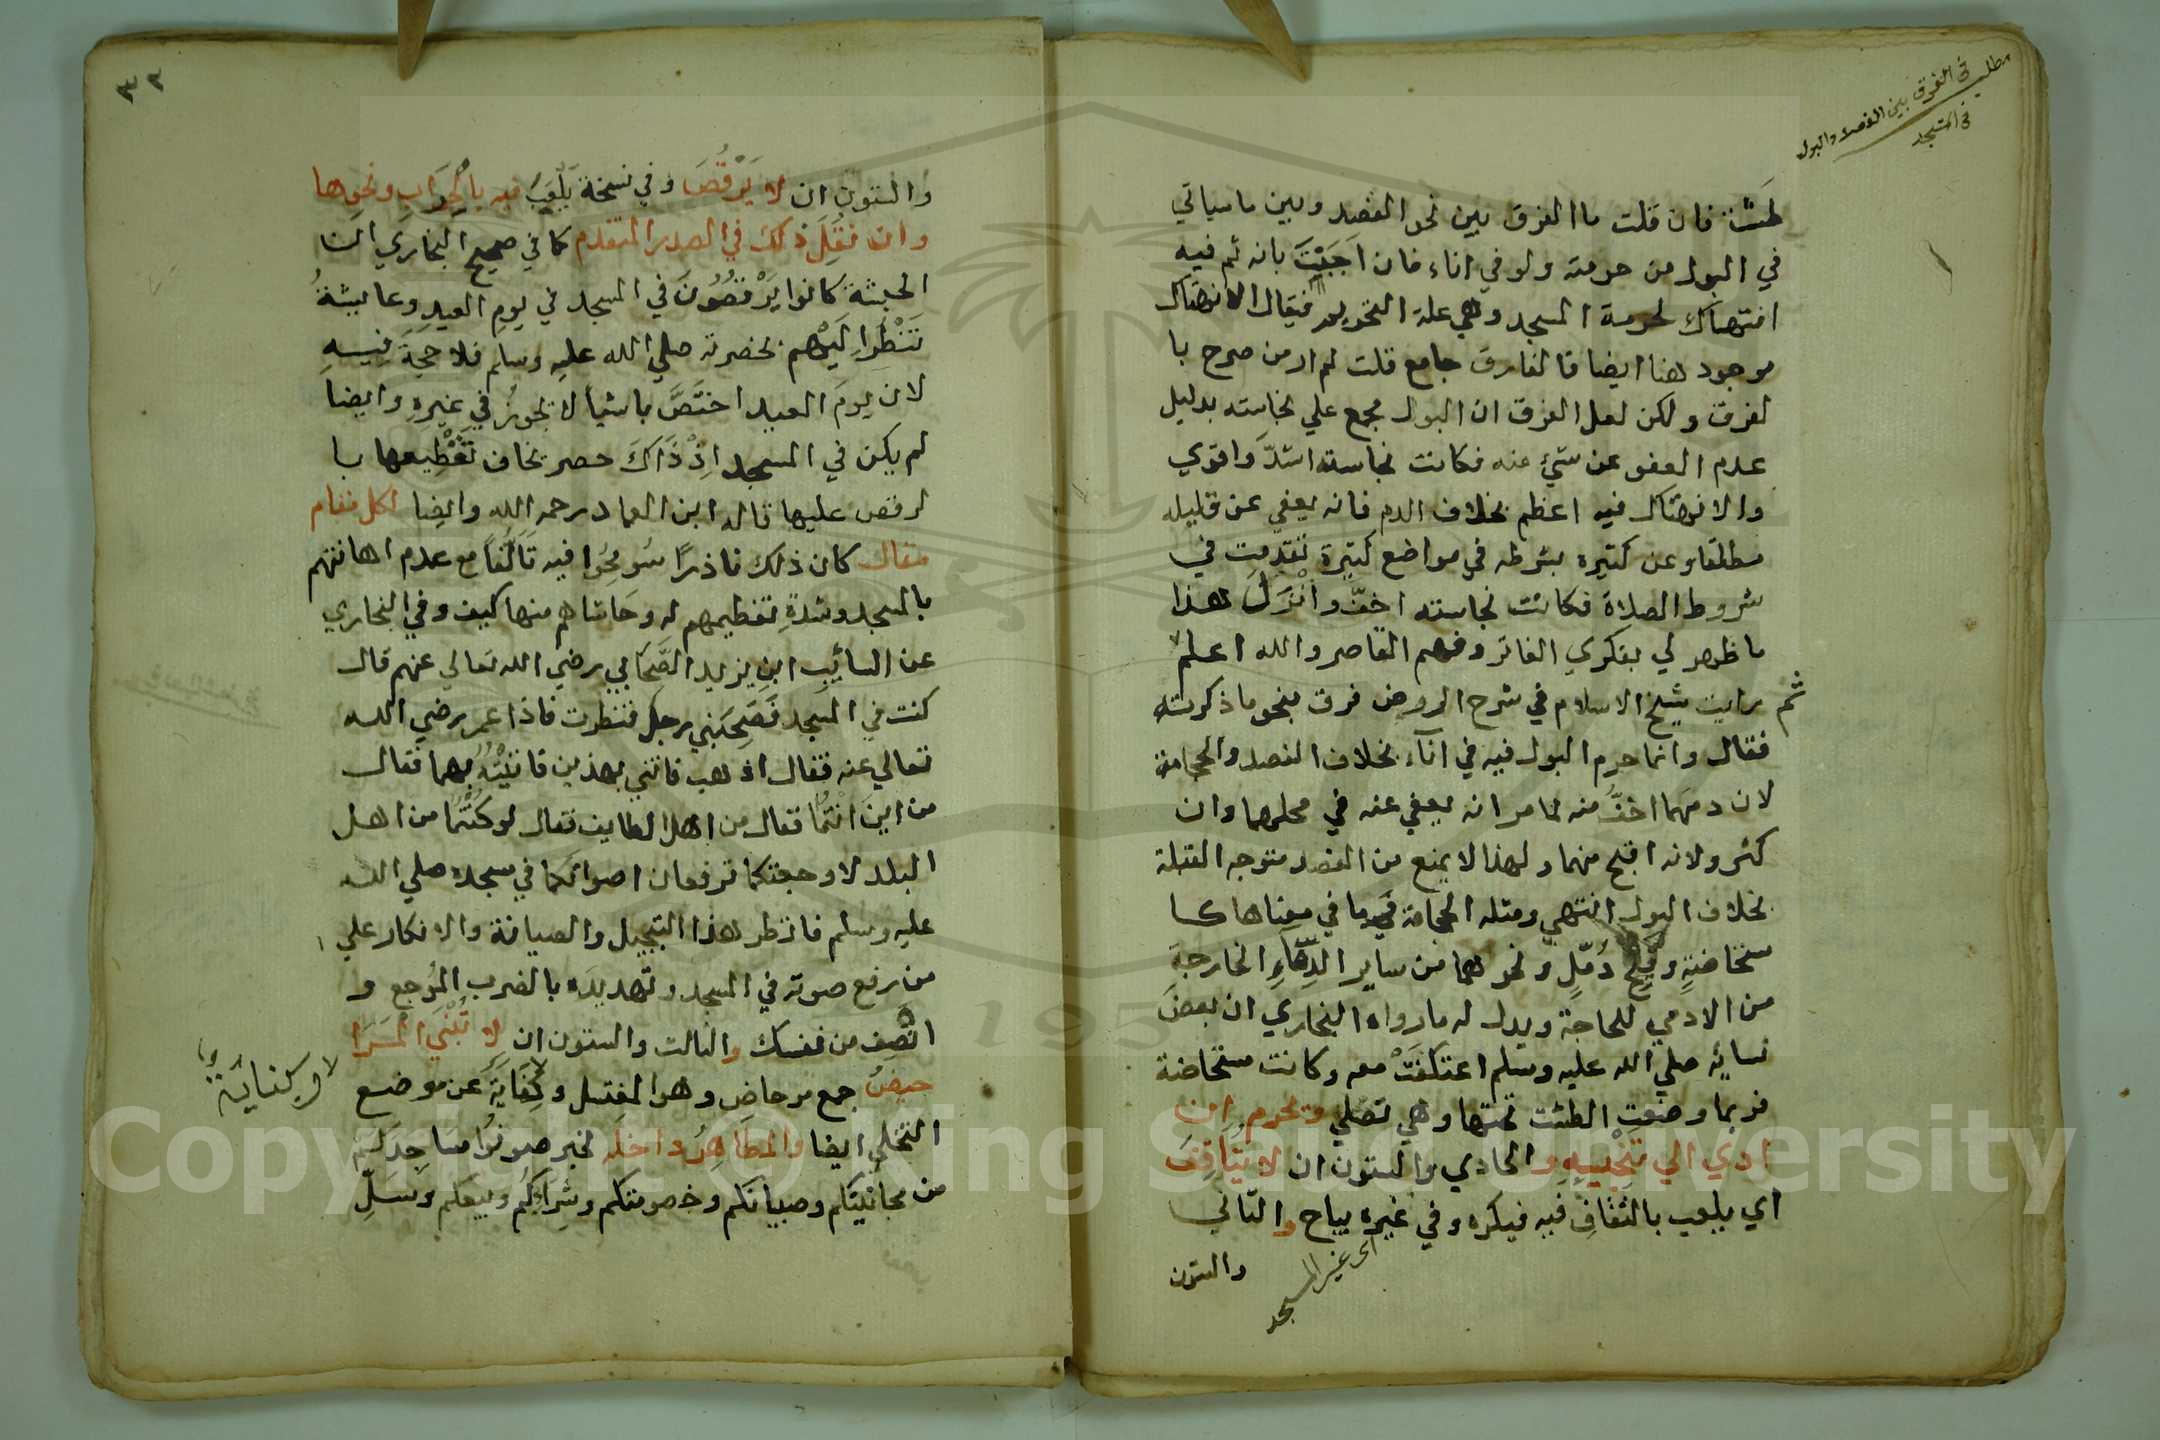 مطلب في الفرق بين الفصد والبول
في المسجد
طشت فان قلت ما الفرق بين نحو الفصد وبين ما سياتي
في البول من حرمته ولو في اناء فان اجبت بانه ثم فيه
انتهاك لحرمة المسجد وهي علة التحريم فيقال الانتهاك
موجود هنا ايضا فالفارق جامع قلت لم ار من صرح با
لفرق ولكن لعل الفرق ان البول مجمع علي نجاسته بدليل
عدم العفو عن شيء منه فكانت نجاسته اشد واقوي
والانتهاك فيه اعظم بخلاف الدم فانه يعفي عن قليله
مطلقا وعن كثيره بشرطه في مواضع كثيرة تقدمت في
شروط الصلاة فكانت نجاسته اخف وانزل هذا
ما ظهر لي بفكري الفاتر وفهم القاصر والله اعلم
ثم رايت شيخ الاسلام في شرح الروض فرق بنحو ما ذكرته
فقال وانما حرم البول فيه في انآء بخلاف الفصد والحجامة
لان دمهما اخف منه لما مر انه يعفي عنه في محلهما وان
كثر ولانه اقبح منهما ولهذا لا يمنع من الفصد متوجه القبلة
بخلاف البول انتهي ومثله الحجامة في ما في معناها كا
ستحاضةٍ وقيحِ دُمّلٍ ونحوهما من ساير الدِّمَآءِ الخارجة
من الادمي للحاجة ويدل له ما رواه البخاري ان بعض
نسائه صلي الله عليه وسلم اعتكفَتْ معه وكانت مستحاضة
فربما وضعت الطشت تحتها وهي تصلي وتحرم ان
ادي الي تنجيسه والحادي والستون ان لا يثاقف
اي يلعب بالثقاف فيه فيكره وفي غيره يباح والثاني
اي غير المسجد
والستون
٣٢
والستون ان لا يَرْقُصَ وفي نسخة يَلْعَبَ فيه بالحِرَابِ ونحوها
وان نُقِلَ ذلك في الصدر المتقدم كما في صحيح البخاري ان
الحبشة كانوا يَرْقصُون في المسجد في يوم العيد وعايشةُ
تَنْظُر اِلَيْهم بحضرته صلي الله عليه وسلم فلا حجة فيه
لان يوم العيد اختَصَّ باشيا لا تجوز في غيره وايضا
لم يكن في المسجد اذْ ذَاكَ حصر يخاف تقطيعها با
لرقص عليها قاله ابن العماد رحمه الله وايضا لكل مقام
مقال كان ذلك نادرًا سُومِحُوا فيه تَالُّفًا مع عدم اهانتهم
بالمسجد وشدةِ تعظيمهم له وحَاشاهم منها كيف وفي البخاري
عن السائب ابن يزيد الصَّحابي رضي الله تعالي عنهم قال
كنت في المسجد فحَصَبَني رجل فنظرت فاذا عمر رضي الله
تعالي عنه فقال اذهب فاتني بهذين فاتيْتُه بهما فقال
من اين انتُما فقال من اهل الطايف فقال لو كنتُما من اهل
البلد لاوجعتكما ترفعان اصواتكما في مسجده صلي الله
عليه وسلم فانظر هذا التبجيل والصيانة والانكار علي
من رفع صوته في المسجد وتهديده بالضرب المُوجع و
انصِف من نفسك والثالث والستون ان لا تُبْنَي المَرَا
حيضُ جمع مرحاضِ وهو المغتسل وكِفَايَةَ عن موضع
لا وكناية
التخلي ايضا والمَطَاهِرُ داخلَه لخبر صونوا مساجدكم
من مجانينكم وصبيانكم وخصومتكم وشِرَائكُم وبيعكم وسَلِّ